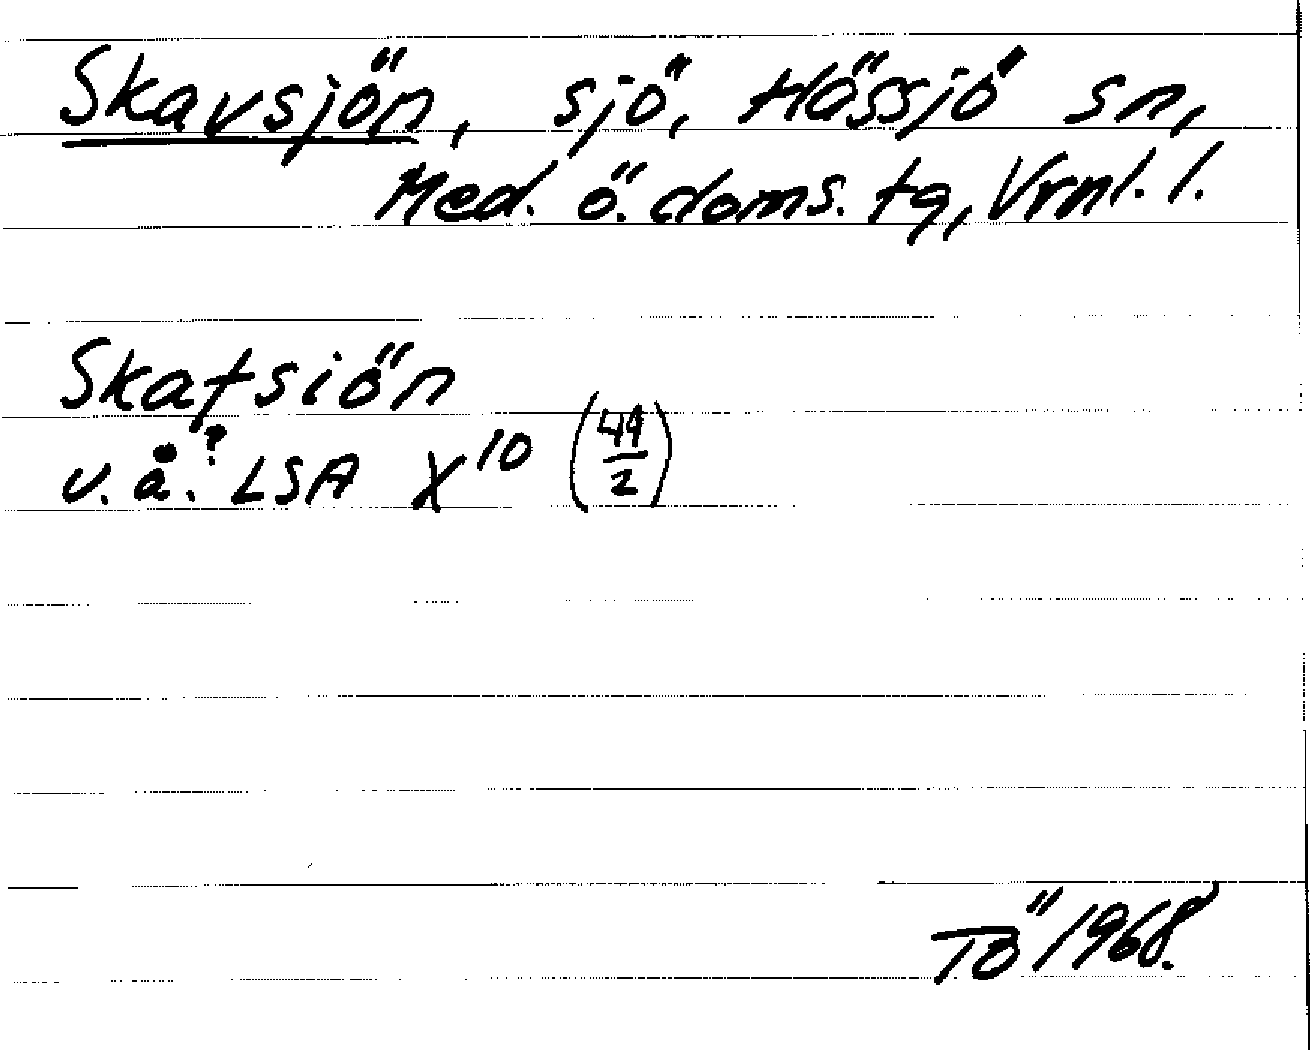 Skavsjön, sjö, Hässjö sn,
Med. ö. doms. tg, Vrnl. l.
Skafsiön
u. å.? LSA X10 (44/2)
TÖ 1968.